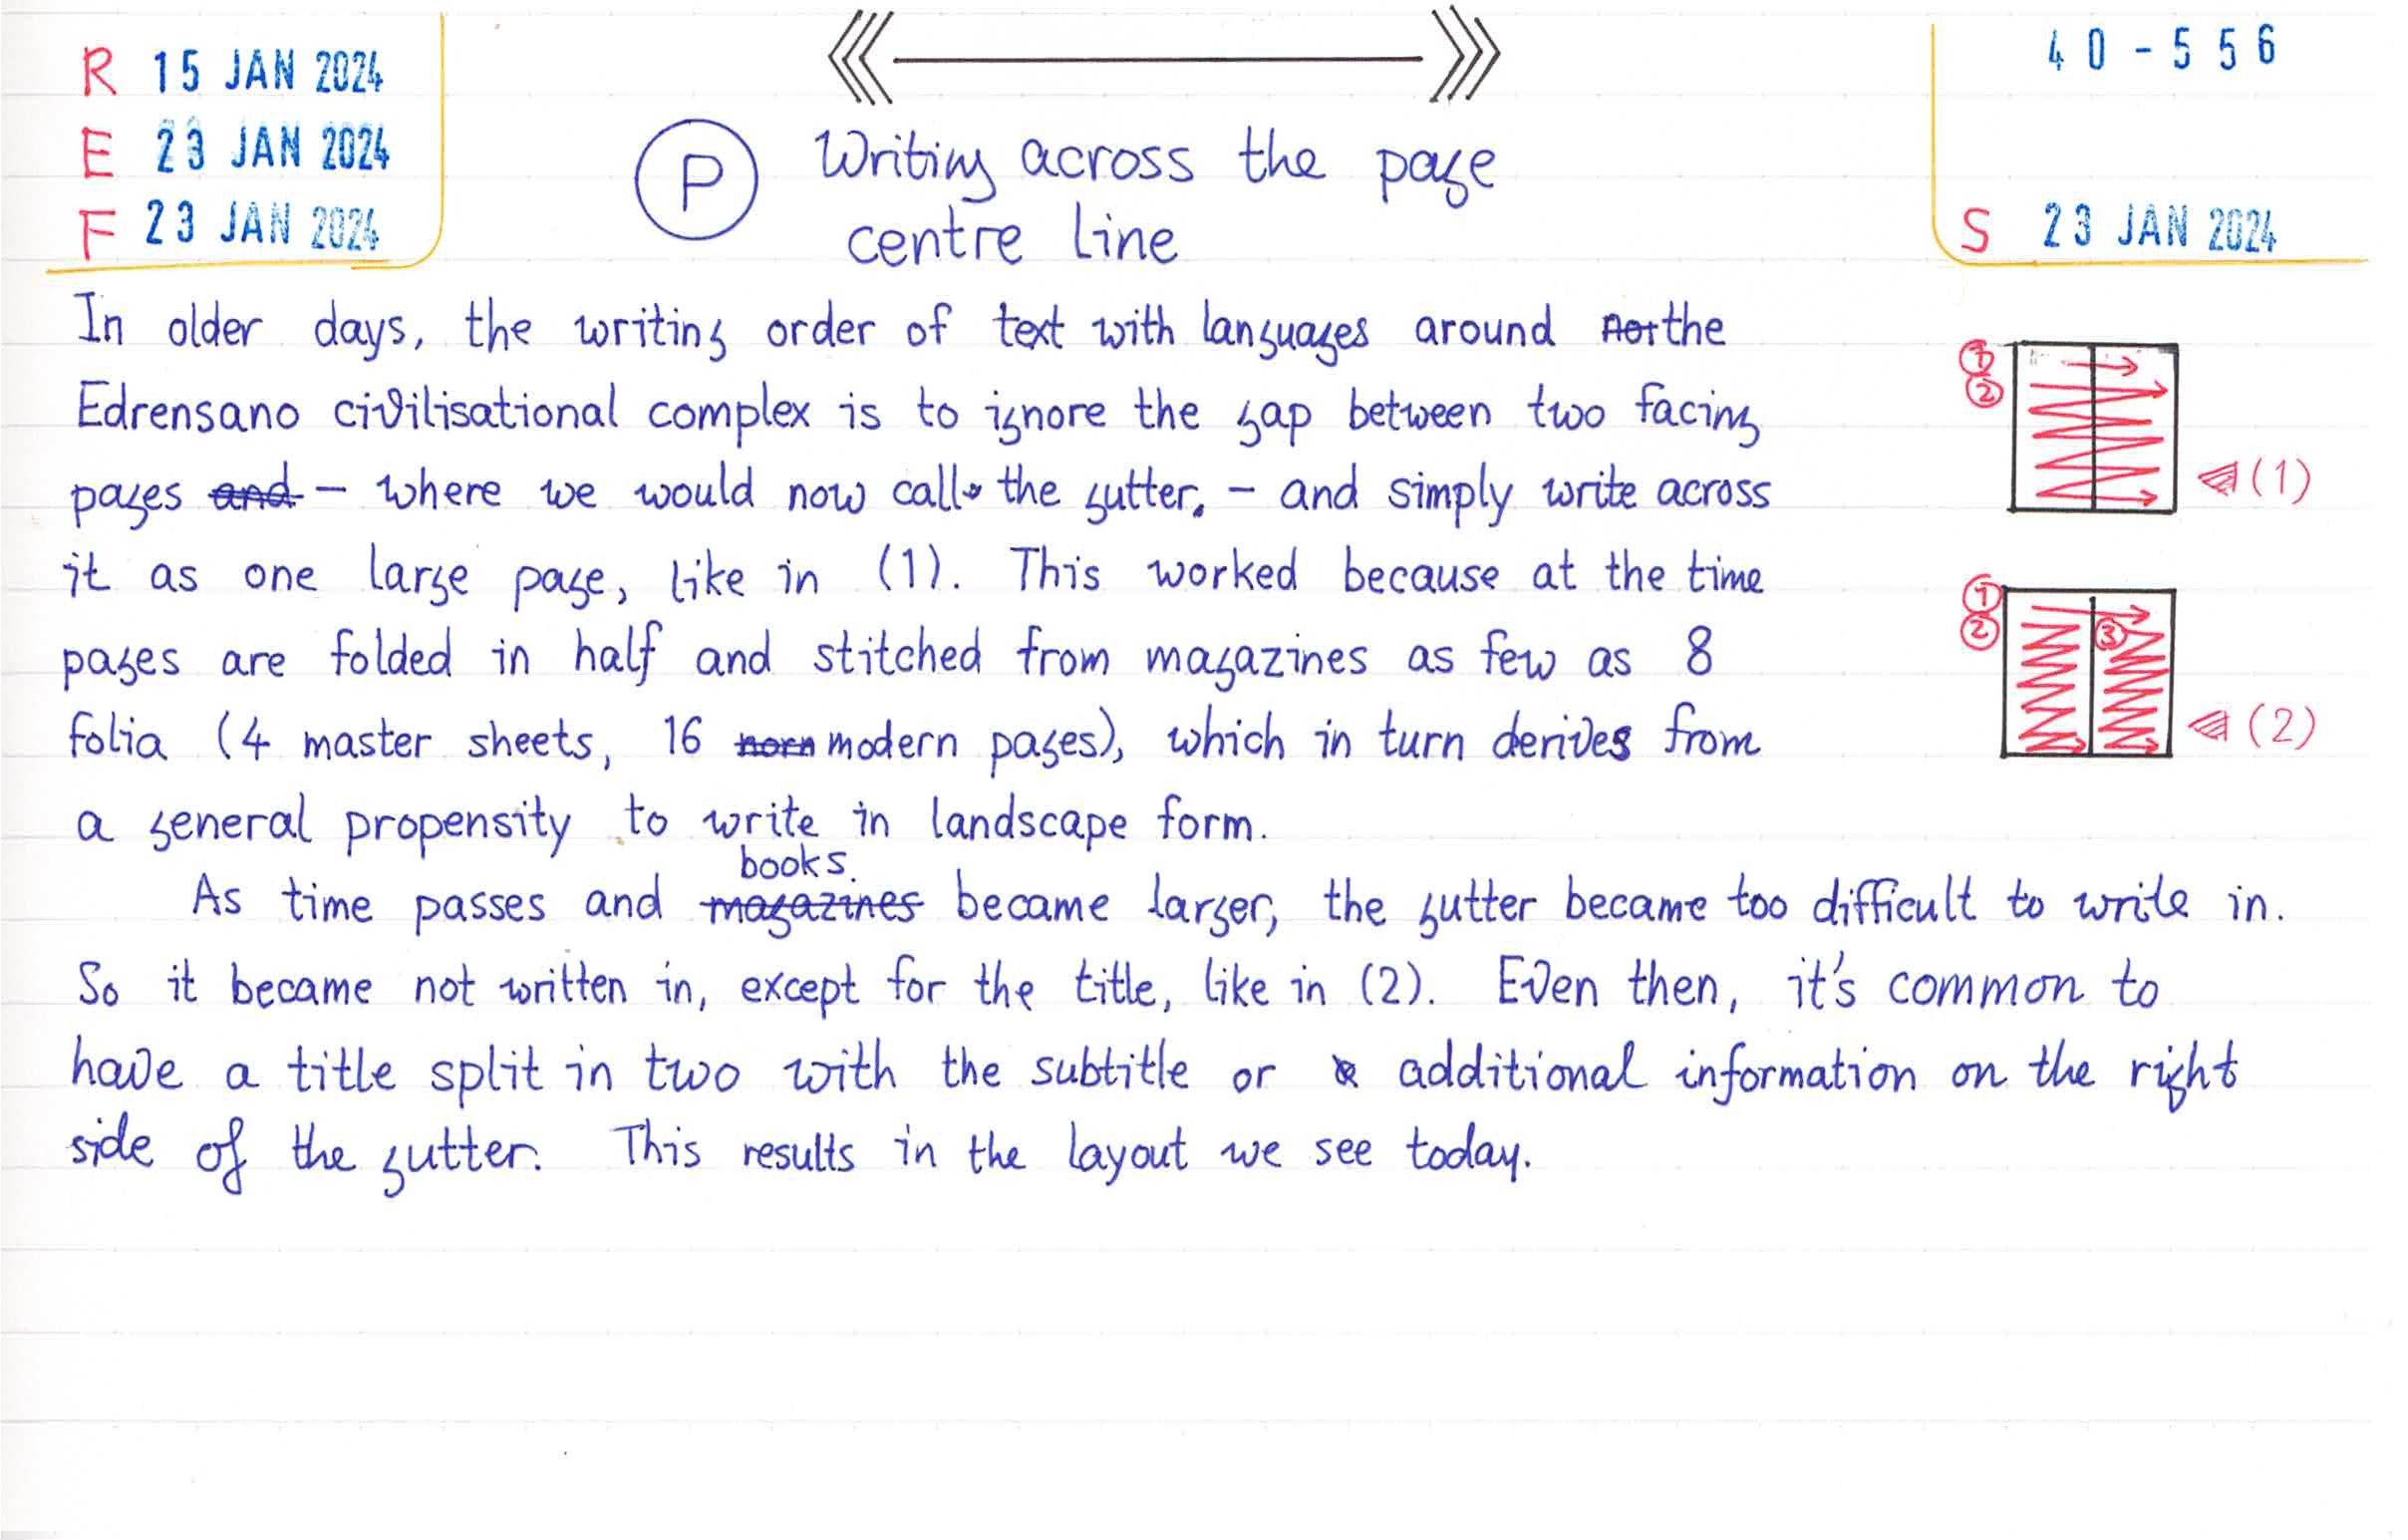 R 15 JAN 2024
E 23 JAN 2024
F 23 JAN 2024
40-556
S 23 JAN 2024
P Writing across the page
centre line
In older days, the writing order of text with languages around the
Edrensano civilisational complex is to ignore the gap between two facing
pages and – where we would now call the gutter. – and simply write across
it as one large page, like in (1). This worked because at the time
pages are folded in half and stitched from magazines as few as 8
folia (4 master sheets, 16 modern pages), which in turn derives from
a general propensity to write in landscape form.
books
As time passes and magazines became larger, the gutter became too difficult to write in.
So it became not written in, except for the title, like in (2). Even then, it's common to
have a title split in two with the subtitle or additional information on the right
side of the gutter. This results in the layout we see today.
1
2
(1)
1
2
3
(2)